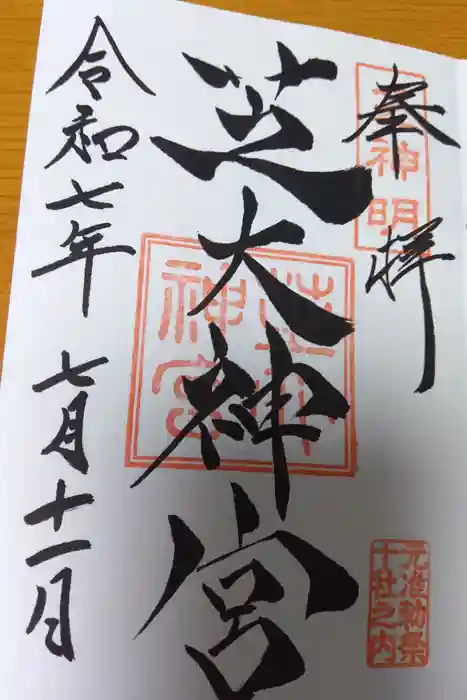 奉拝
神明
芝大神宮
芝大
神宮
元准勅祭
十社之内
令和七年 七月十一日